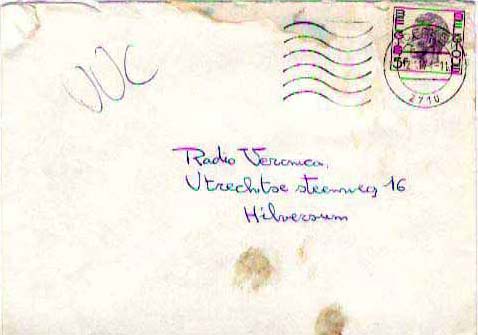 VVC
BELGIE
BELGIQUE
5F
2710
Radio Veronica,
Utrechtse steenweg 16
Hilversum